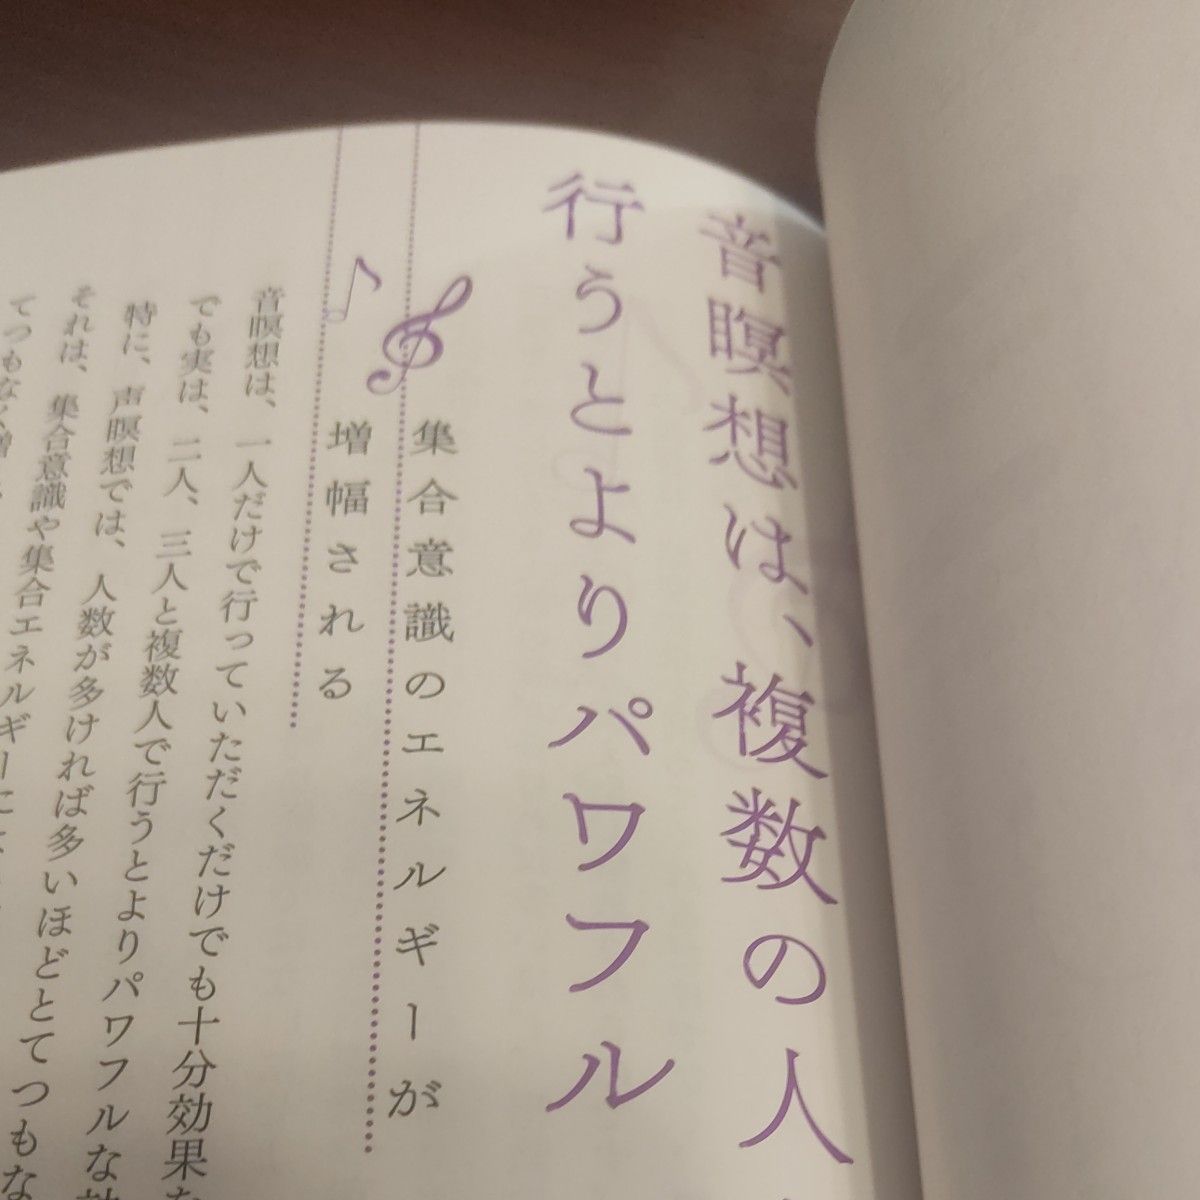 音瞑想は、複数の人
行うとよりパワフル
集合意識のエネルギーが
増幅される
音瞑想は、一人だけで行っていただくだけでも十分効果
でも実は、二人、三人と複数人で行うとよりパワフルな
特に、声瞑想では、人数が多ければ多いほどとてつもな
それは、集合意識や集合エネルギーに
てつもなく増